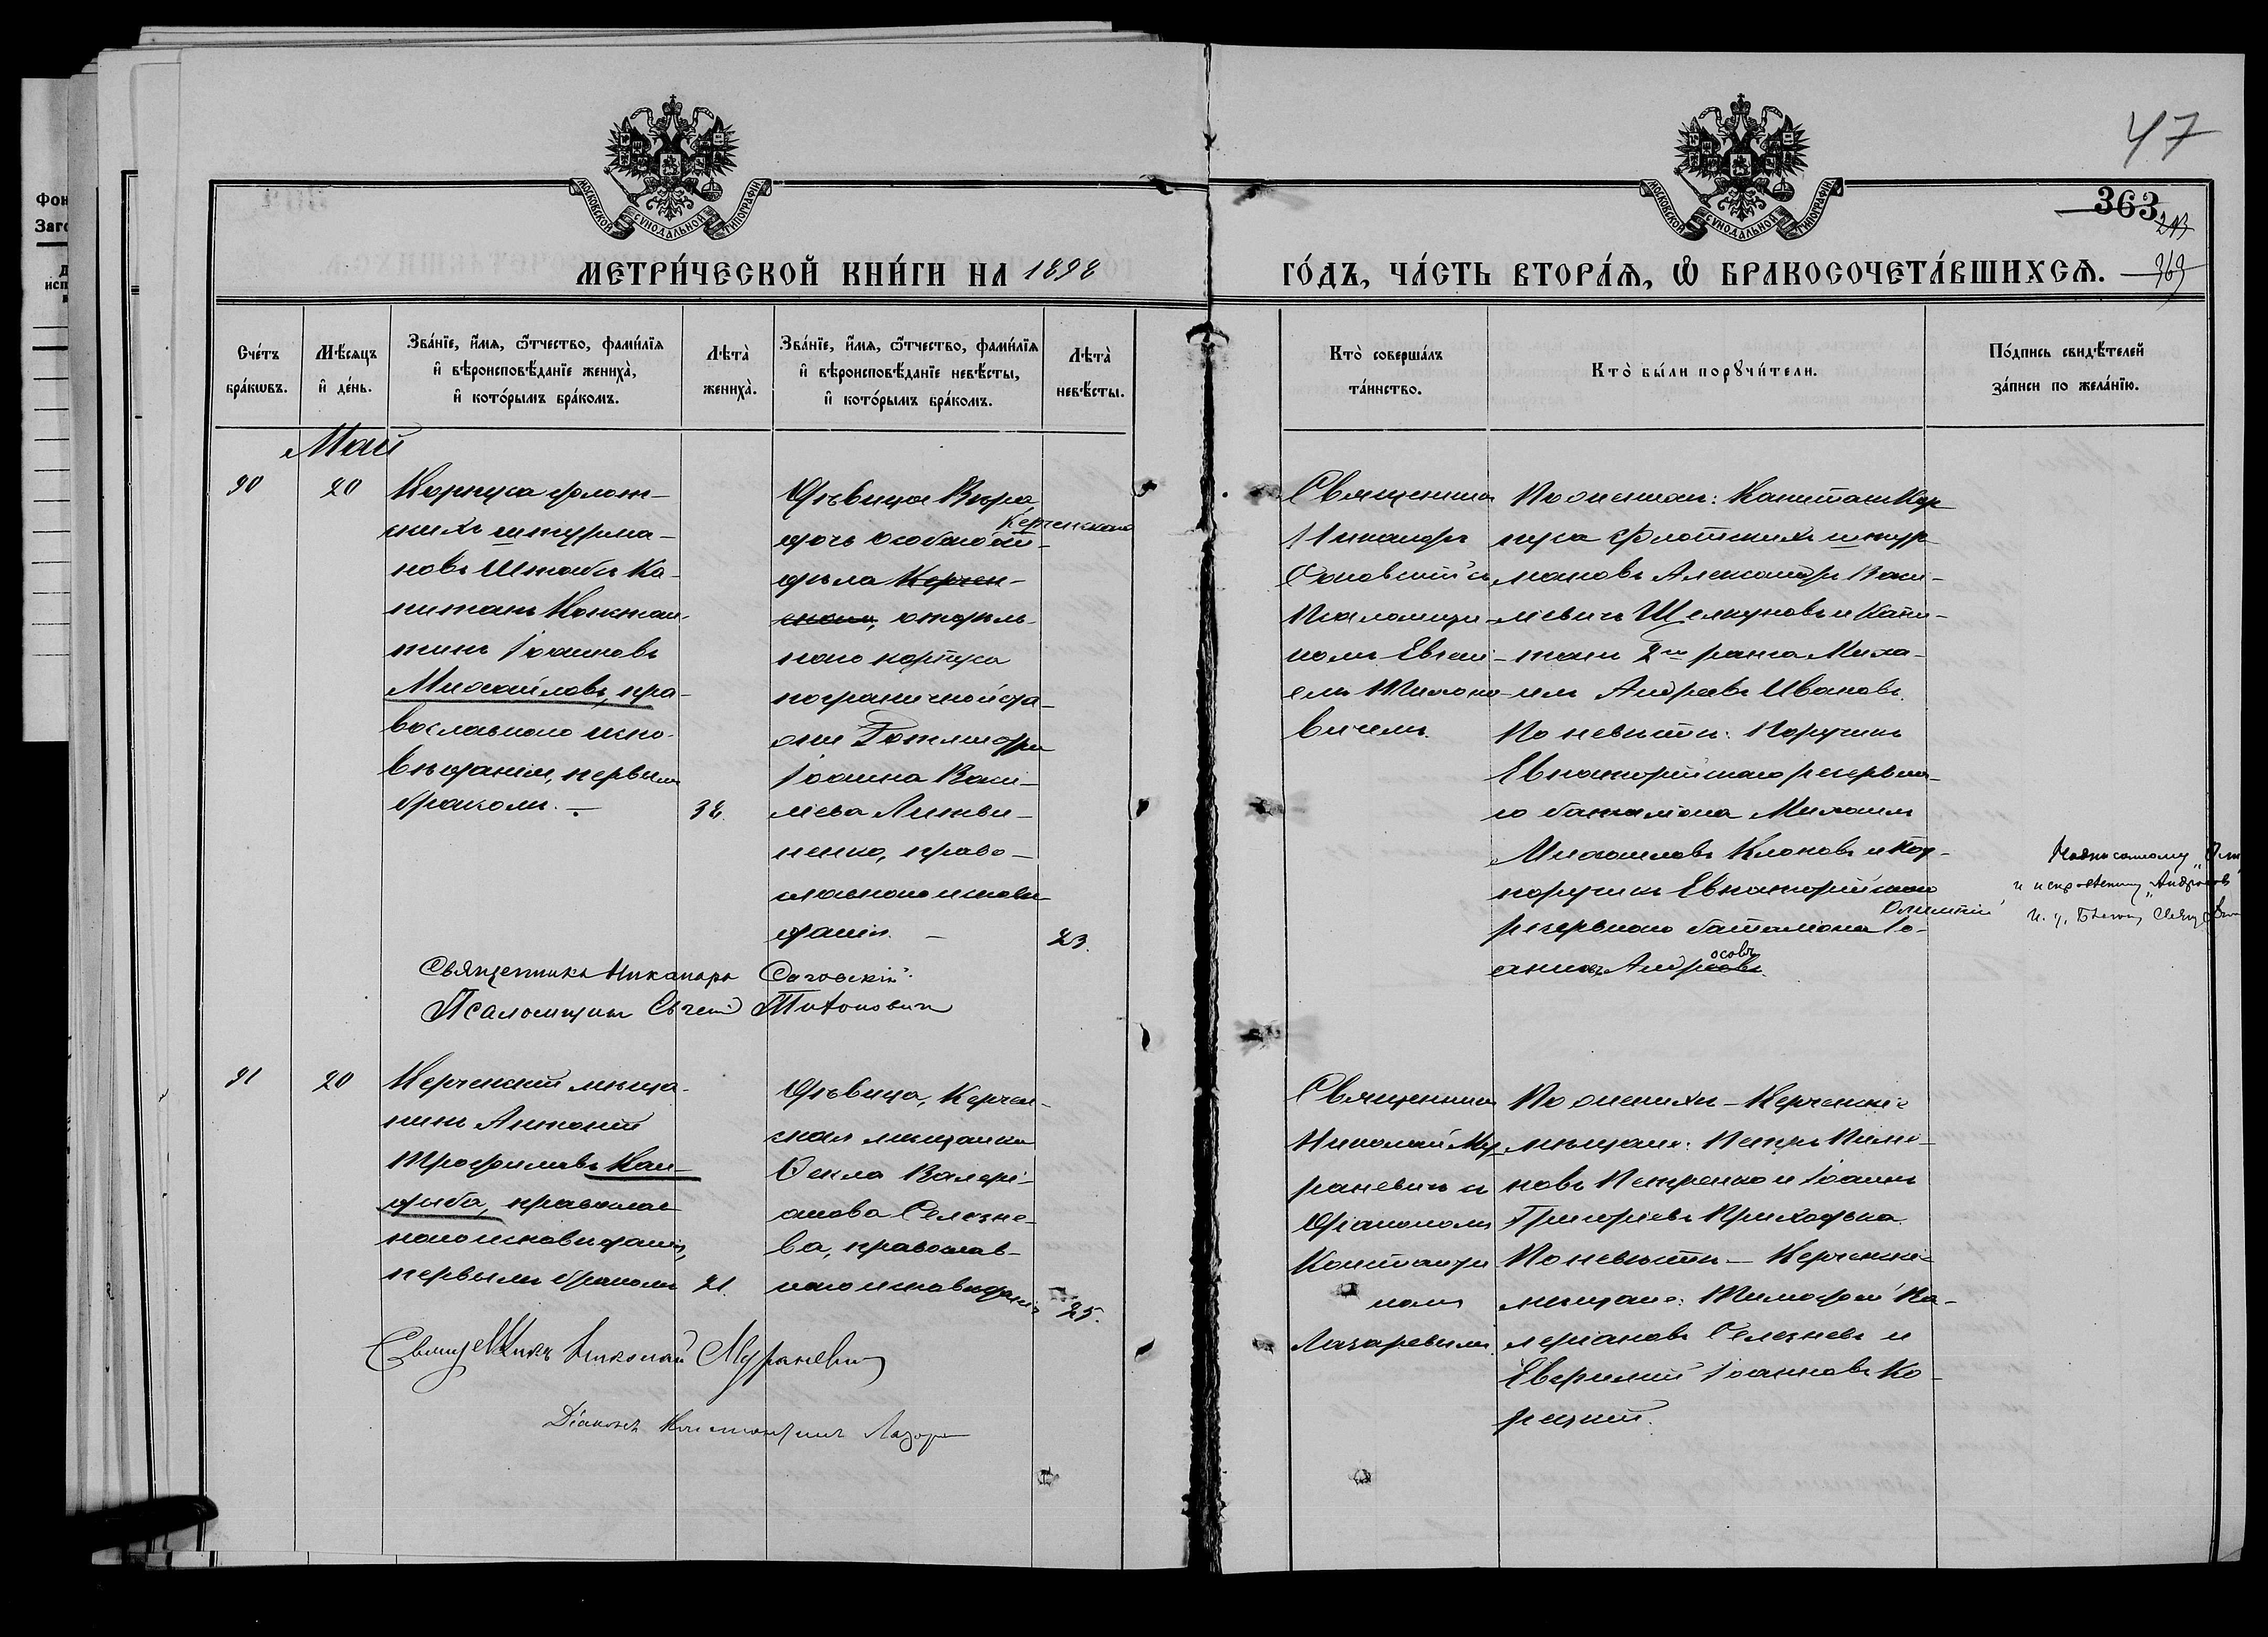 47
363
243
369
МОСКОВСКОЙ СѴНОДАЛЬНОЙ ТИПОГРАФІИ
МОСКОВСКОЙ СѴНОДАЛЬНОЙ ТИПОГРАФІИ
МЕТРИ́ЧЕСКОЙ КНИ́ГИ НА 1898
ГО́ДЪ, ЧА́СТЬ ВТОРА́Ѧ, Ѽ БРАКОСОЧЕТА́ВШИХСѦ.
Сче́тъ бра́кѡвъ.
Мѣ́сяцъ и҆ де́нь.
Зва́нїе, и҆́мя, ѻ҆́тчество, фами́лїя и҆ вѣроисповѣ́данїе жениха̀, и҆ кото́рымъ бра́комъ.
Лѣта̀ жениха̀.
Зва́нїе, и҆́мя, ѻ҆́тчество, фами́лїя и҆ вѣроисповѣ́данїе невѣ́сты, и҆ кото́рымъ бра́комъ.
Лѣта̀ невѣ́сты.
Кто̀ соверша́лъ та́инство.
Кто̀ бы́ли порꙋчи́тели.
По́дпись свидѣ́телей за́писи по жела́нїю.
Май
30
20
Корпуса флот-
скихъ штурма-
новъ Штабсъ Ка-
питанъ Констан-
тинъ Іоанновъ
Михайловъ, пра-
вославнаго испо-
вѣданія, первымъ
бракомъ. —
32.
Дѣвица Вѣра,
Керченскаго
дочь Особаго от-
дѣла Керчен-
скаго, отдѣль-
наго корпуса
пограничной стра-
жи Ротмистра
Іоанна Васи-
льева Литви-
ненко, право-
славнаго исповѣ-
данія. —
23.
Священникъ
Никаноръ
Псаломщи-
комъ Евгені-
емъ Тихоно-
вичемъ.
По женихѣ: Капитанъ Кор-
пуса Флотскихъ штур-
мановъ Александръ Васи-
льевичъ Шелкуновъ и Капи-
танъ 2го ранга Миха-
илъ Андреевъ Ивановъ.
По невѣстѣ: Поручикъ
Евпаторійскаго резервна-
го баталіона Михаилъ
Михаиловъ Клоковъ и Под-
поручикъ Евпаторійскаго
Олимпій
резервнаго баталіона Іо-
осовъ
анновъ Андреевъ.
Священникъ Никаноръ
Псаломщикъ Евгеній Тихоновичъ
31
20
Керченскій мѣща-
нинъ Антоній
Трофимовъ Кан-
дыба, православ-
наго исповѣданія,
первымъ бракомъ
21.
Дѣвица, Керчен-
ская мѣщанка
Ѳекла Валері-
анова Селезне-
ва, православ-
наго исповѣданія
25.
Священникъ
Николай Му-
раневичъ и
Діаконъ
Константи-
номъ
Лазаревымъ.
По женихѣ — Керченскіе
мѣщане: Петръ Пиме-
новъ Петренко и Іоаннъ
Григорьевъ Приходька.
По невѣстѣ — Керченскіе
мѣщане: Тимофей Ва-
леріановъ Селезневъ и
Евфимій Іоанновъ Ко-
рецкій.
Священникъ Николай Мураневичъ
Діаконъ Константинъ Лазаре